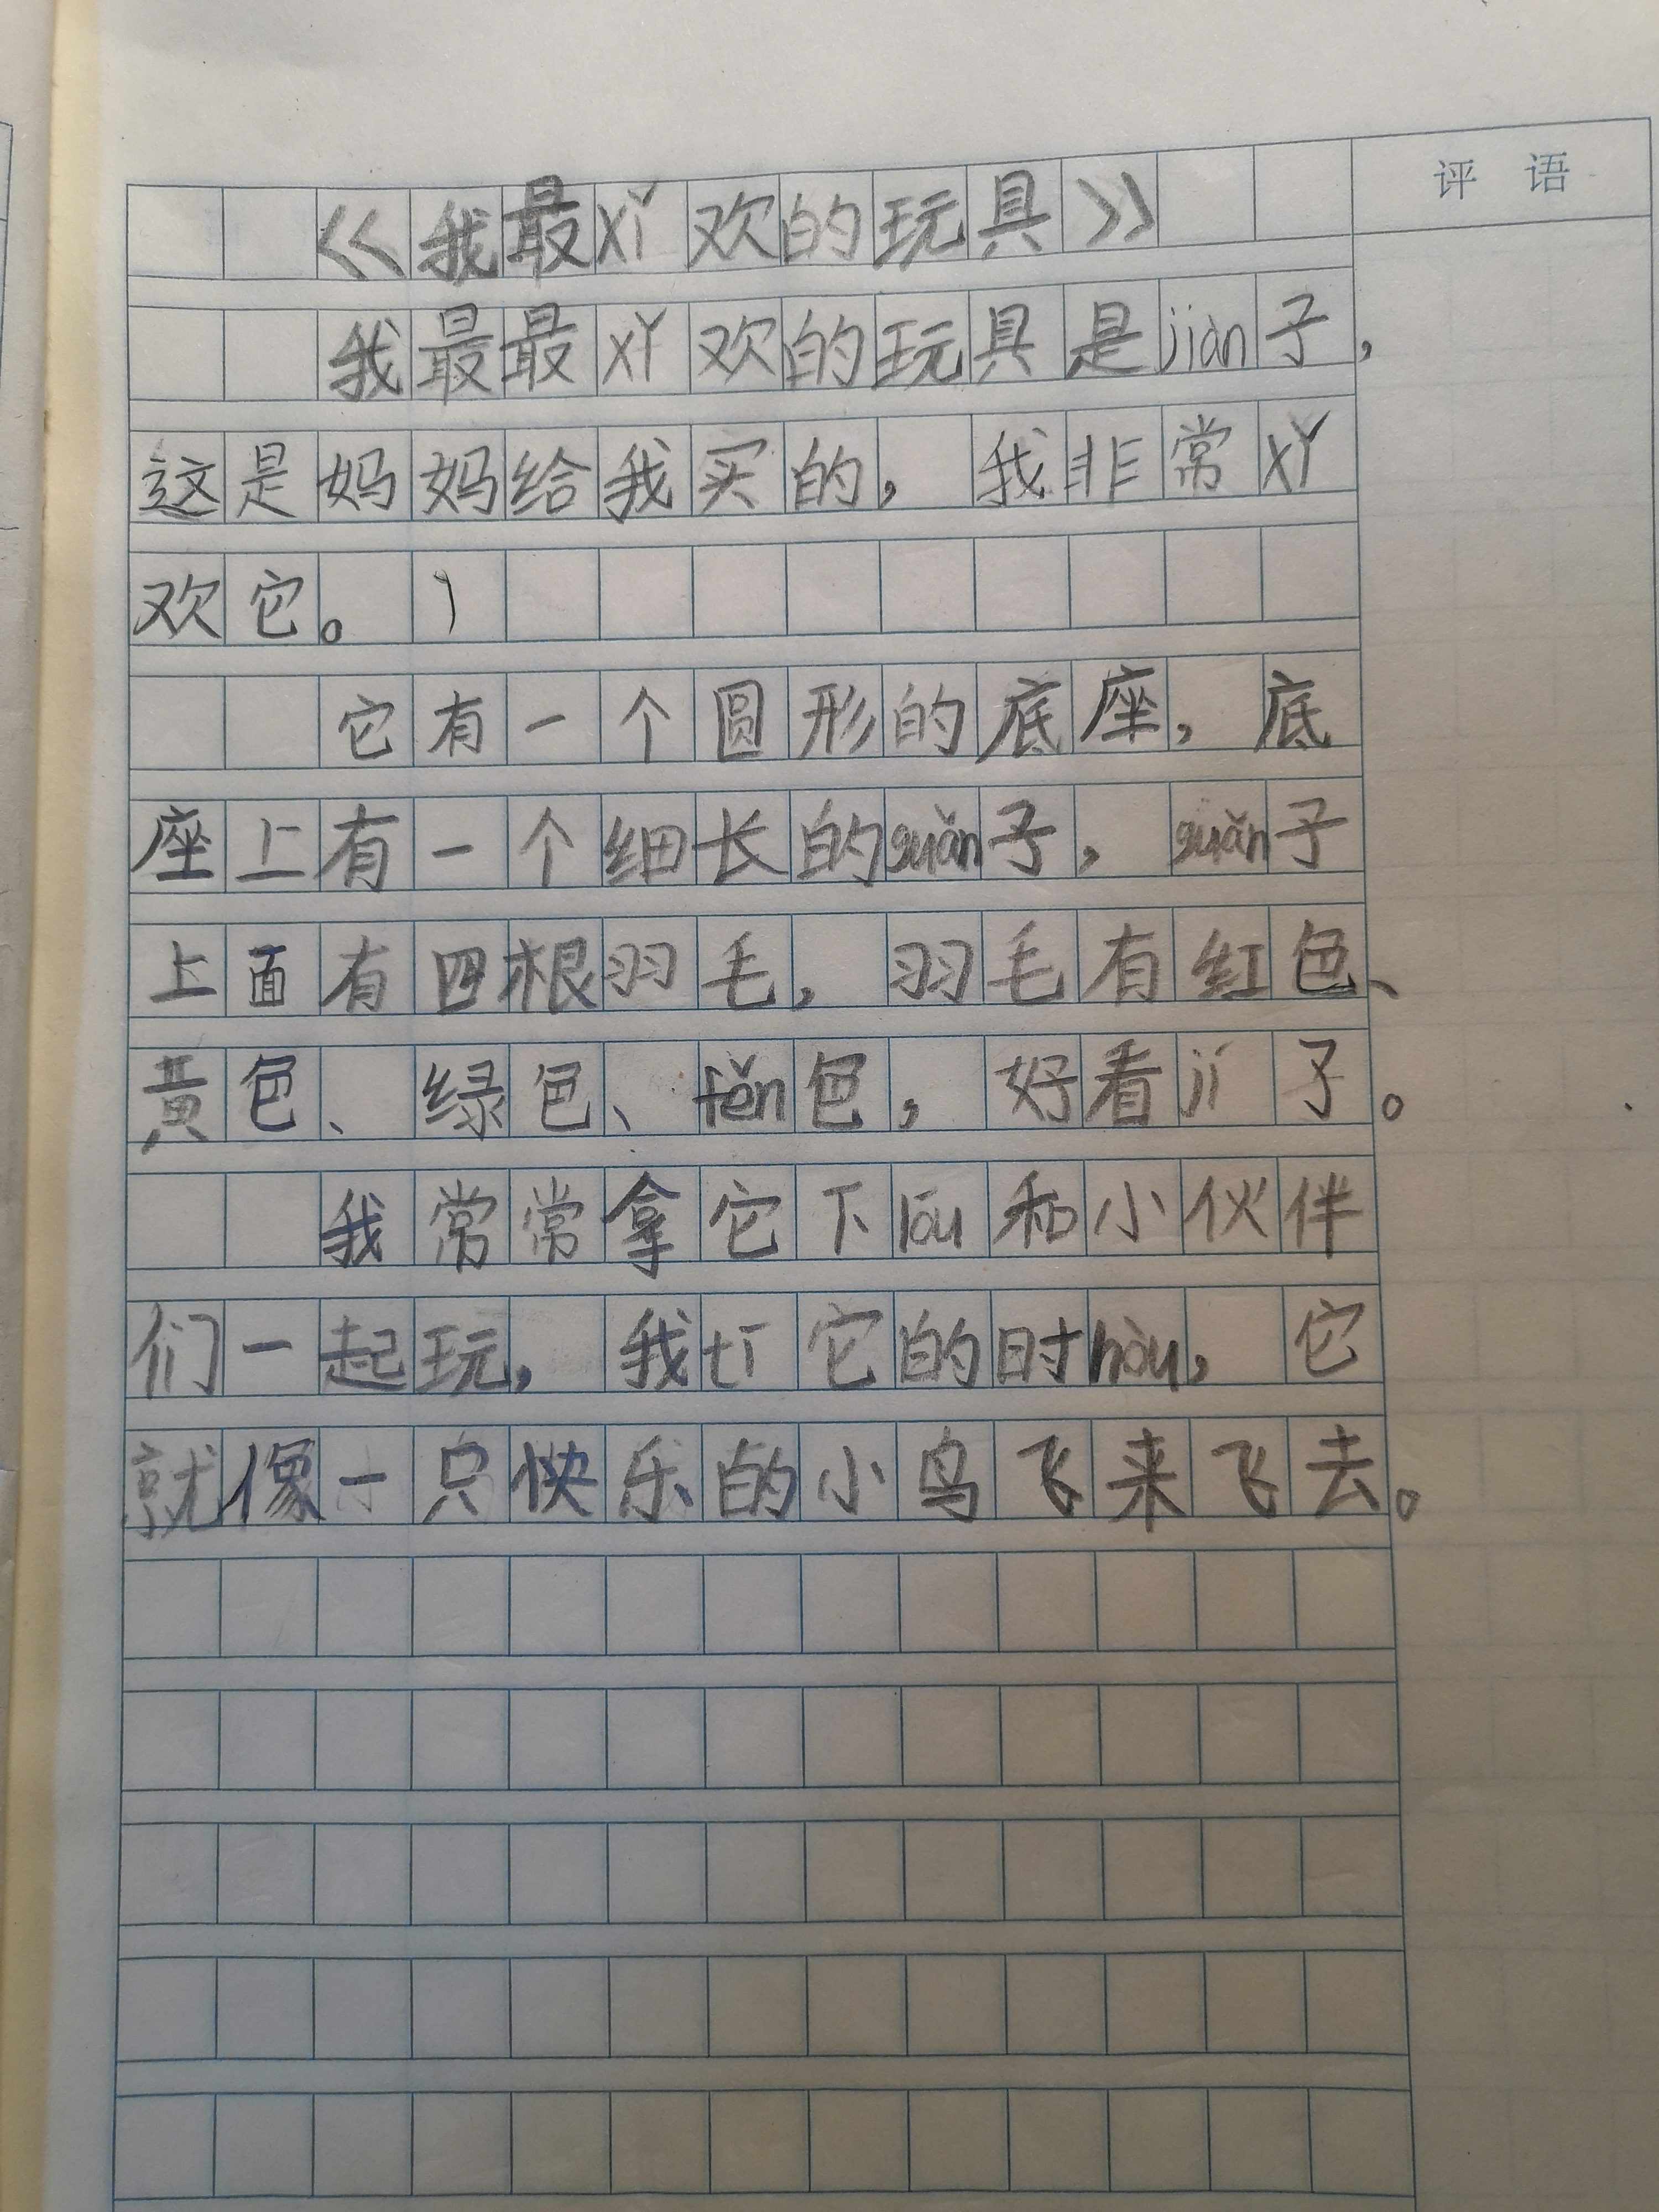 评 语
《我最xǐ欢的玩具》
我最最xǐ欢的玩具是jiàn子，
这是妈妈给我买的，我非常xǐ
欢它。）
它有一个圆形的底座，底
座上有一个细长的guǎn子，guǎn子
上面有四根羽毛，羽毛有红色、
黄色、绿色、fěn色，好看jí了。
我常常拿它下lóu和小伙伴
们一起玩，我tī它的时hòu，它
就像一只快乐的小鸟飞来飞去。